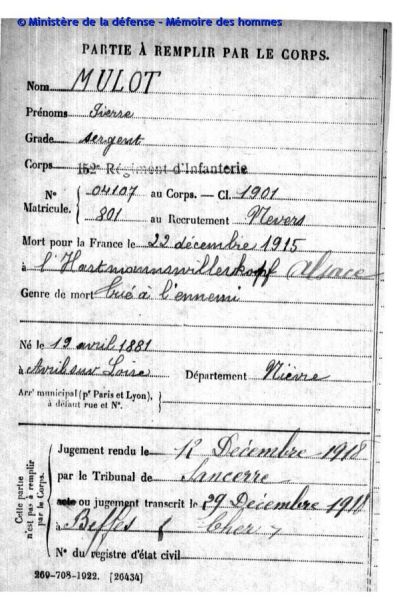 © Ministère de la défense - Mémoire des hommes
PARTIE À REMPLIR PAR LE CORPS.
Nom MULOT
Prénoms Pierre
Grade sergent
Corps 152e Régiment d'Infanterie
N° Matricule. { 04107 au Corps. — Cl. 1901
801 au Recrutement Nevers
Mort pour la France le 22 décembre 1915
à l'Hartmannswillerskopf Alsace
Genre de mort tué à l'ennemi
Né le 19 avril 1881
à Avril sur Loire Département Nièvre
Arrt municipal (pr Paris et Lyon), }
à défaut rue et N°.
Cette partie n'est pas à remplir par le Corps.
Jugement rendu le 12 Décembre 1918
par le Tribunal de Sancerre
acte ou jugement transcrit le 29 Décembre 1918
à Beffes ( Cher )
N° du registre d'état civil
269-708-1922. [26434]